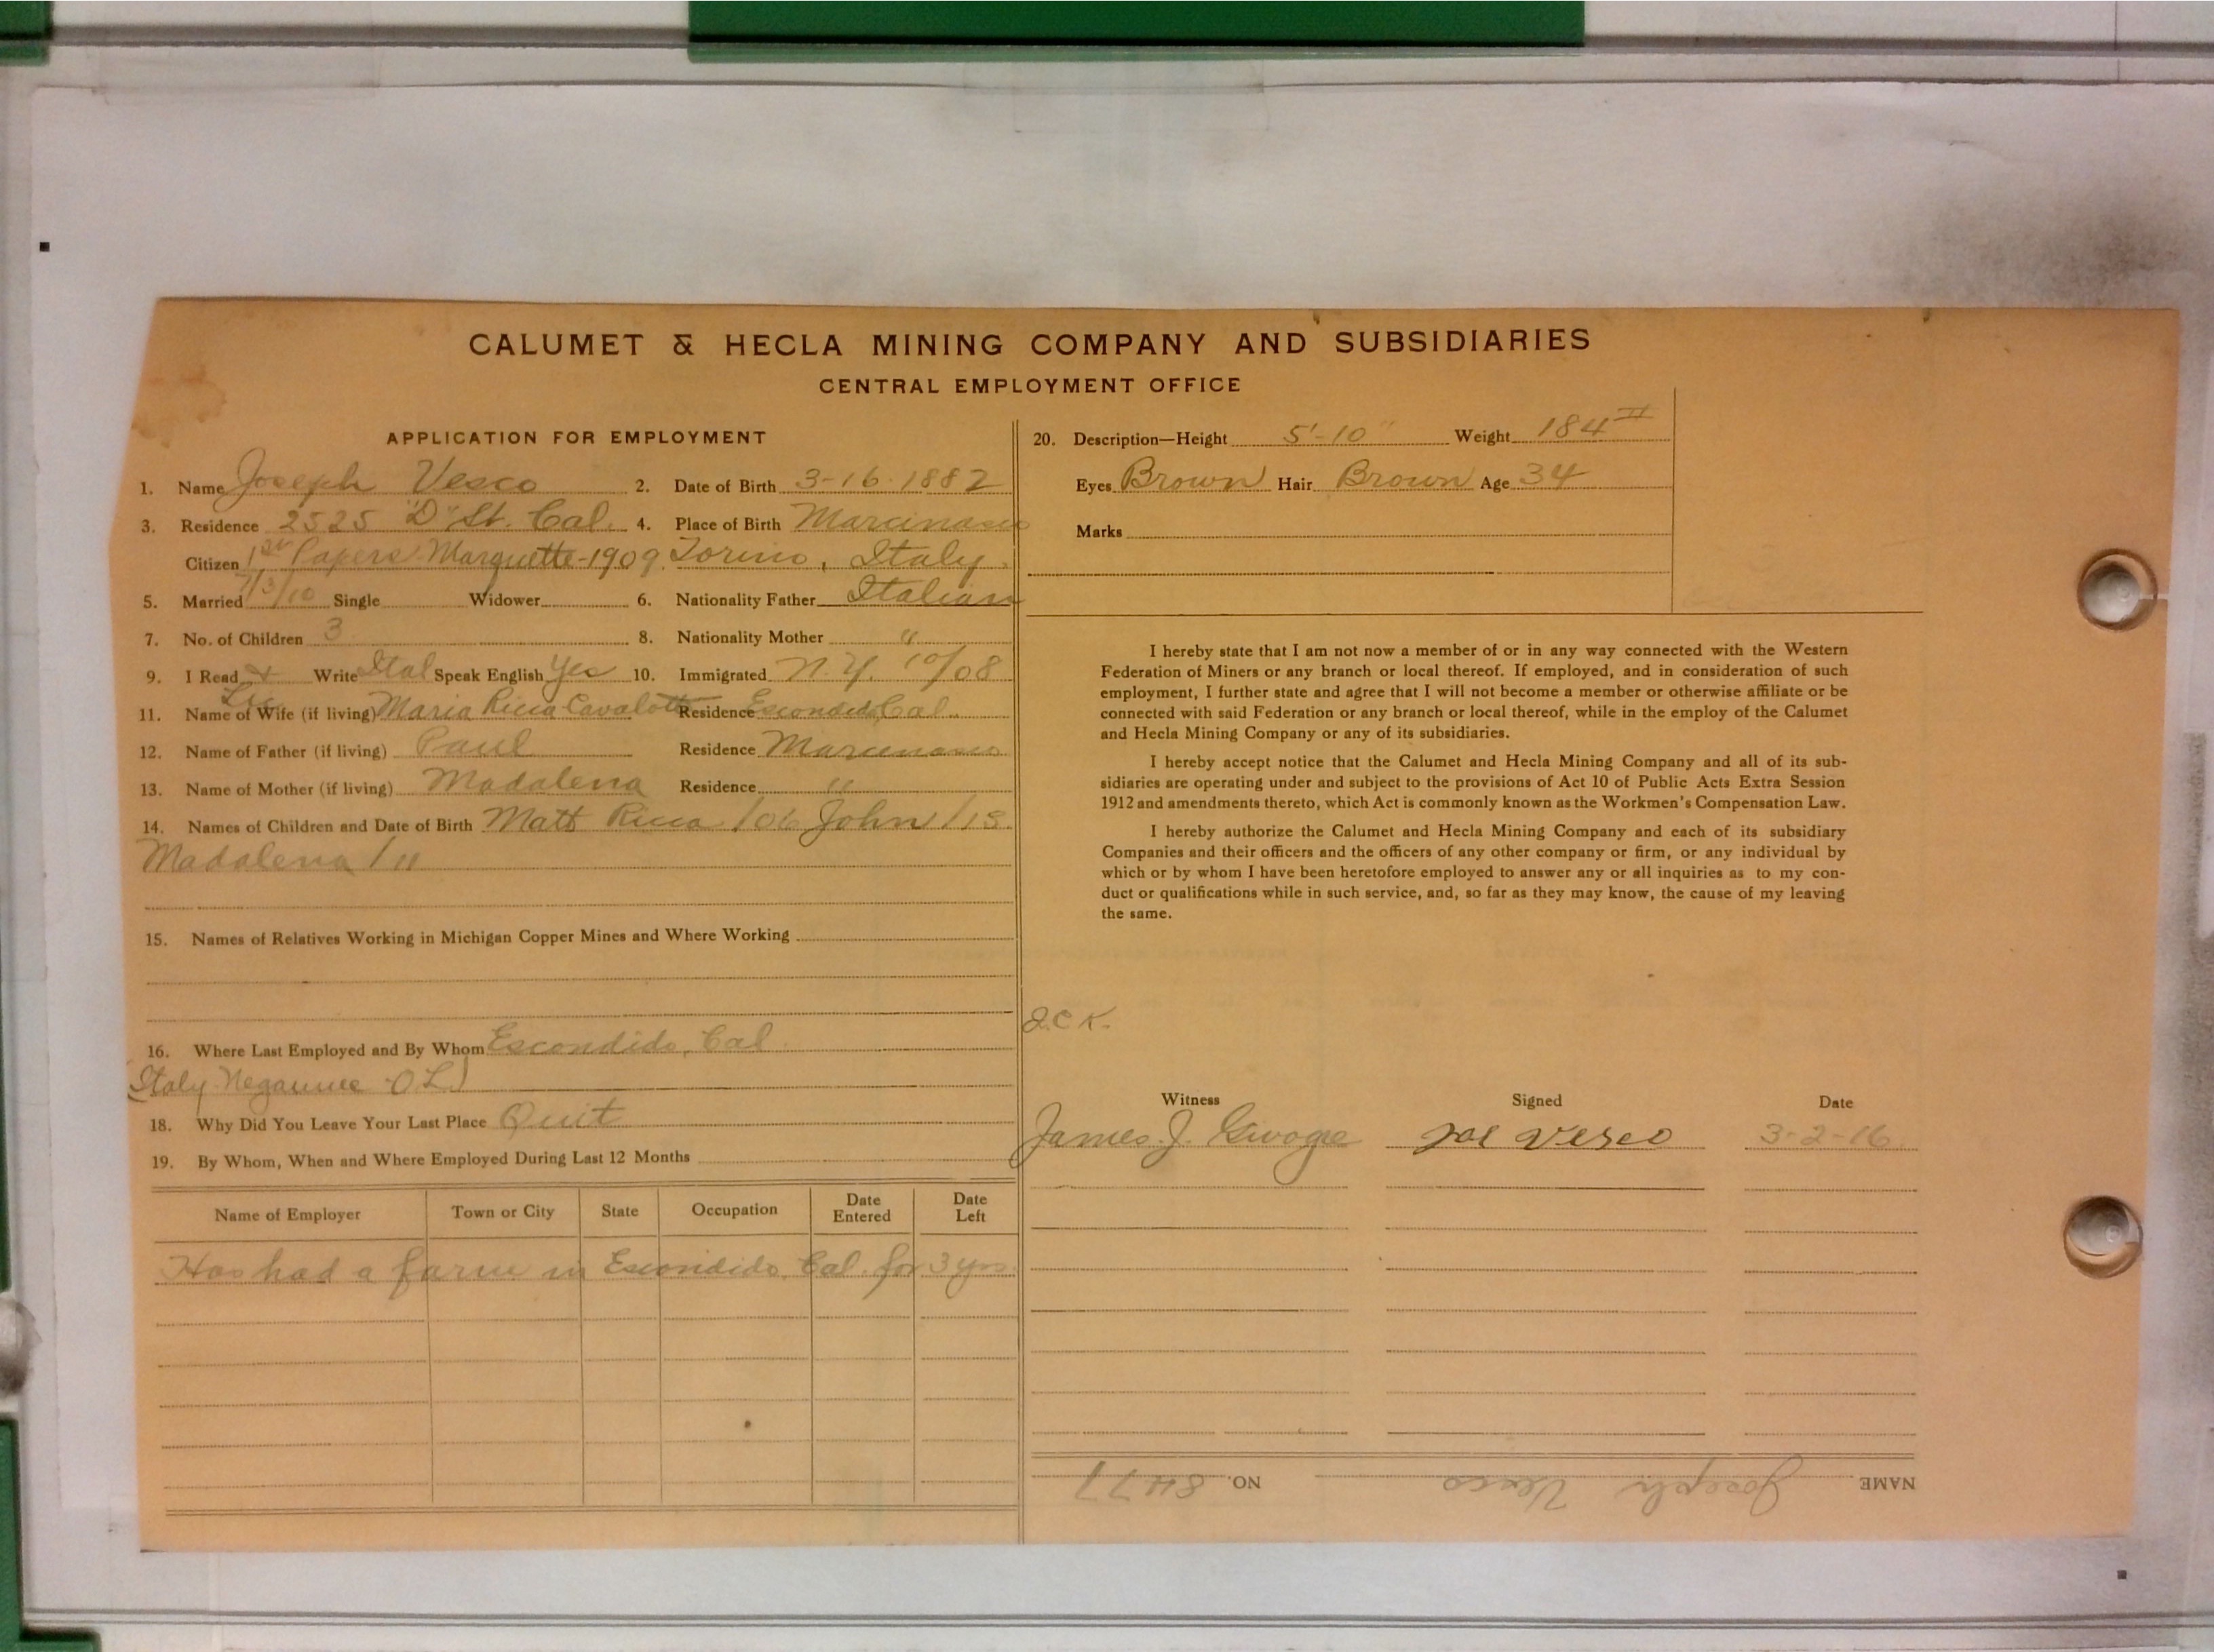 CALUMET & HECLA MINING COMPANY AND SUBSIDIARIES
CENTRAL EMPLOYMENT OFFICE
APPLICATION FOR EMPLOYMENT
1. Name Joseph Vesco 2. Date of Birth 3-16-1882
3. Residence 2525 "D" St. Cal. 4. Place of Birth
Citizen 1st Papers Marquette-1909. Torino, Italy.
5. Married 7/3/10 Single Widower 6. Nationality Father Italian
7. No. of Children 3 8. Nationality Mother "
9. I Read & Write Ital Speak English Yes 10. Immigrated N.Y. 10/08
11. Name of Wife (if living) Maria Residence Escondido, Cal.
12. Name of Father (if living) Paul Residence
13. Name of Mother (if living) Madalena Residence "
14. Names of Children and Date of Birth Matt Ricca /06 John /13
Madalena /11
15. Names of Relatives Working in Michigan Copper Mines and Where Working
16. Where Last Employed and By Whom Escondido, Cal
(Italy-Negaunee-O.L.)
18. Why Did You Leave Your Last Place Quit
19. By Whom, When and Where Employed During Last 12 Months
Name of Employer Town or City State Occupation Date Entered Date Left
Has had a farm in Escondido, Cal. for 3 yrs.
20. Description—Height 5'-10" Weight 184
Eyes Brown Hair Brown Age 34
Marks
I hereby state that I am not now a member of or in any way connected with the Western
Federation of Miners or any branch or local thereof. If employed, and in consideration of such
employment, I further state and agree that I will not become a member or otherwise affiliate or be
connected with said Federation or any branch or local thereof, while in the employ of the Calumet
and Hecla Mining Company or any of its subsidiaries.
I hereby accept notice that the Calumet and Hecla Mining Company and all of its sub-
sidiaries are operating under and subject to the provisions of Act 10 of Public Acts Extra Session
1912 and amendments thereto, which Act is commonly known as the Workmen's Compensation Law.
I hereby authorize the Calumet and Hecla Mining Company and each of its subsidiary
Companies and their officers and the officers of any other company or firm, or any individual by
which or by whom I have been heretofore employed to answer any or all inquiries as to my con-
duct or qualifications while in such service, and, so far as they may know, the cause of my leaving
the same.
Witness Signed Date
James J. Joe Vesco 3-2-16
NAME Joseph Vesco NO. 8477